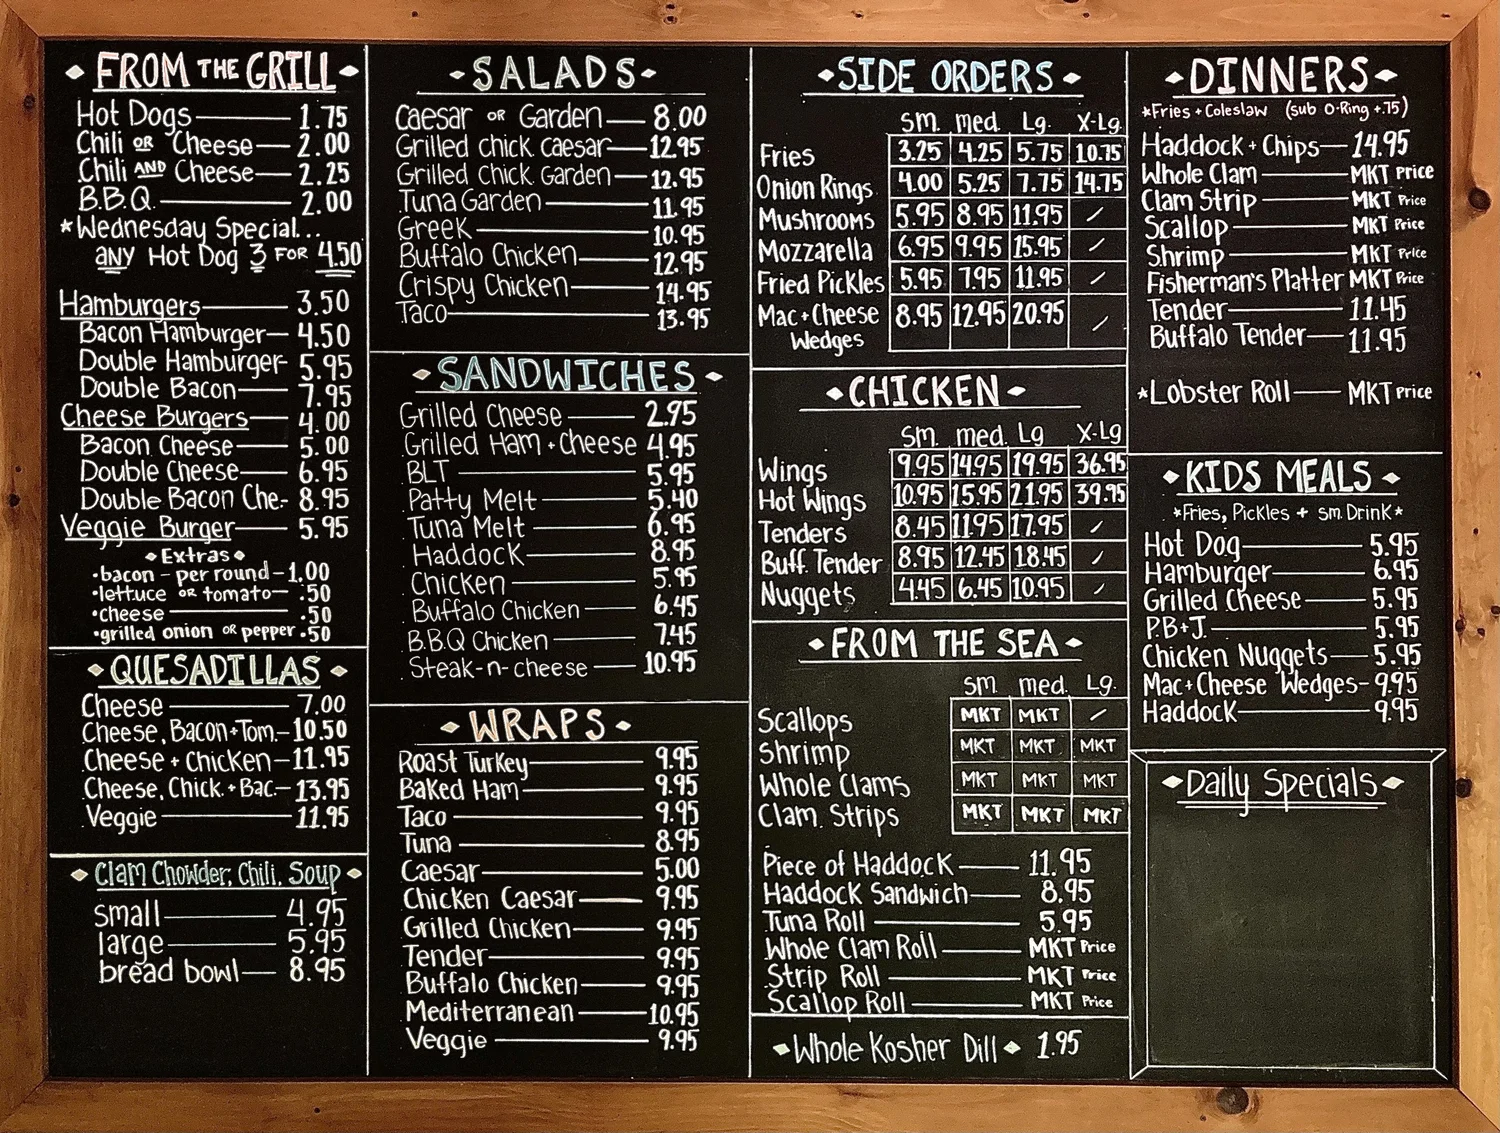 FROM THE GRILL
Hot Dogs 1.75
Chili OR Cheese 2.00
Chili AND Cheese 2.25
B.B.Q. 2.00
*Wednesday Special...
ANY Hot Dog 3 FOR 4.50
Hamburgers 3.50
Bacon Hamburger 4.50
Double Hamburger 5.95
Double Bacon 7.95
Cheese Burgers 4.00
Bacon Cheese 5.00
Double Cheese 6.95
Double Bacon Che- 8.95
Veggie Burger 5.95
Extras
•bacon - per round - 1.00
•lettuce OR tomato .50
•cheese .50
•grilled onion OR pepper .50
QUESADILLAS
Cheese 7.00
Cheese, Bacon + Tom. 10.50
Cheese + Chicken 11.95
Cheese, Chick. + Bac. 13.95
Veggie 11.95
Clam Chowder, Chili, Soup
small 4.95
large 5.95
bread bowl 8.95
SALADS
Caesar OR Garden 8.00
Grilled chick caesar 12.95
Grilled chick Garden 12.95
Tuna Garden 11.95
Greek 10.95
Buffalo Chicken 12.95
Crispy Chicken 14.95
Taco 13.95
SANDWICHES
Grilled Cheese 2.95
Grilled Ham + cheese 4.95
BLT 5.95
Patty Melt 5.40
Tuna Melt 6.95
Haddock 8.95
Chicken 5.95
Buffalo Chicken 6.45
B.B.Q Chicken 7.45
Steak-n-cheese 10.95
WRAPS
Roast Turkey 9.95
Baked Ham 9.95
Taco 9.95
Tuna 8.95
Caesar 5.00
Chicken Caesar 9.95
Grilled Chicken 9.95
Tender 9.95
Buffalo Chicken 9.95
Mediterranean 10.95
Veggie 9.95
SIDE ORDERS
sm. med. Lg. X-Lg.
Fries 3.25 4.25 5.75 10.75
Onion Rings 4.00 5.25 7.75 14.75
Mushrooms 5.95 8.95 11.95 /
Mozzarella 6.95 9.95 15.95 /
Fried Pickles 5.95 7.95 11.95 /
Mac + Cheese 8.95 12.95 20.95 /
Wedges
CHICKEN
sm. med. Lg X-Lg
Wings 9.95 14.95 19.95 36.95
Hot Wings 10.95 15.95 21.95 39.95
Tenders 8.45 11.95 17.95 /
Buff. Tender 8.95 12.45 18.45 /
Nuggets 4.45 6.45 10.95 /
FROM THE SEA
sm. med. Lg.
Scallops MKT MKT /
Shrimp MKT MKT MKT
Whole Clams MKT MKT MKT
Clam Strips MKT MKT MKT
Piece of Haddock 11.95
Haddock Sandwich 8.95
Tuna Roll 5.95
Whole Clam Roll MKT Price
Strip Roll MKT Price
Scallop Roll MKT Price
Whole Kosher Dill 1.95
DINNERS
*Fries + Coleslaw (sub O-Ring +.75)
Haddock + Chips 14.95
Whole Clam MKT Price
Clam Strip MKT Price
Scallop MKT Price
Shrimp MKT Price
Fisherman's Platter MKT Price
Tender 11.45
Buffalo Tender 11.95
*Lobster Roll MKT Price
KIDS MEALS
*Fries, Pickles + sm. Drink*
Hot Dog 5.95
Hamburger 6.95
Grilled Cheese 5.95
P.B + J. 5.95
Chicken Nuggets 5.95
Mac + Cheese Wedges 9.95
Haddock 9.95
Daily Specials